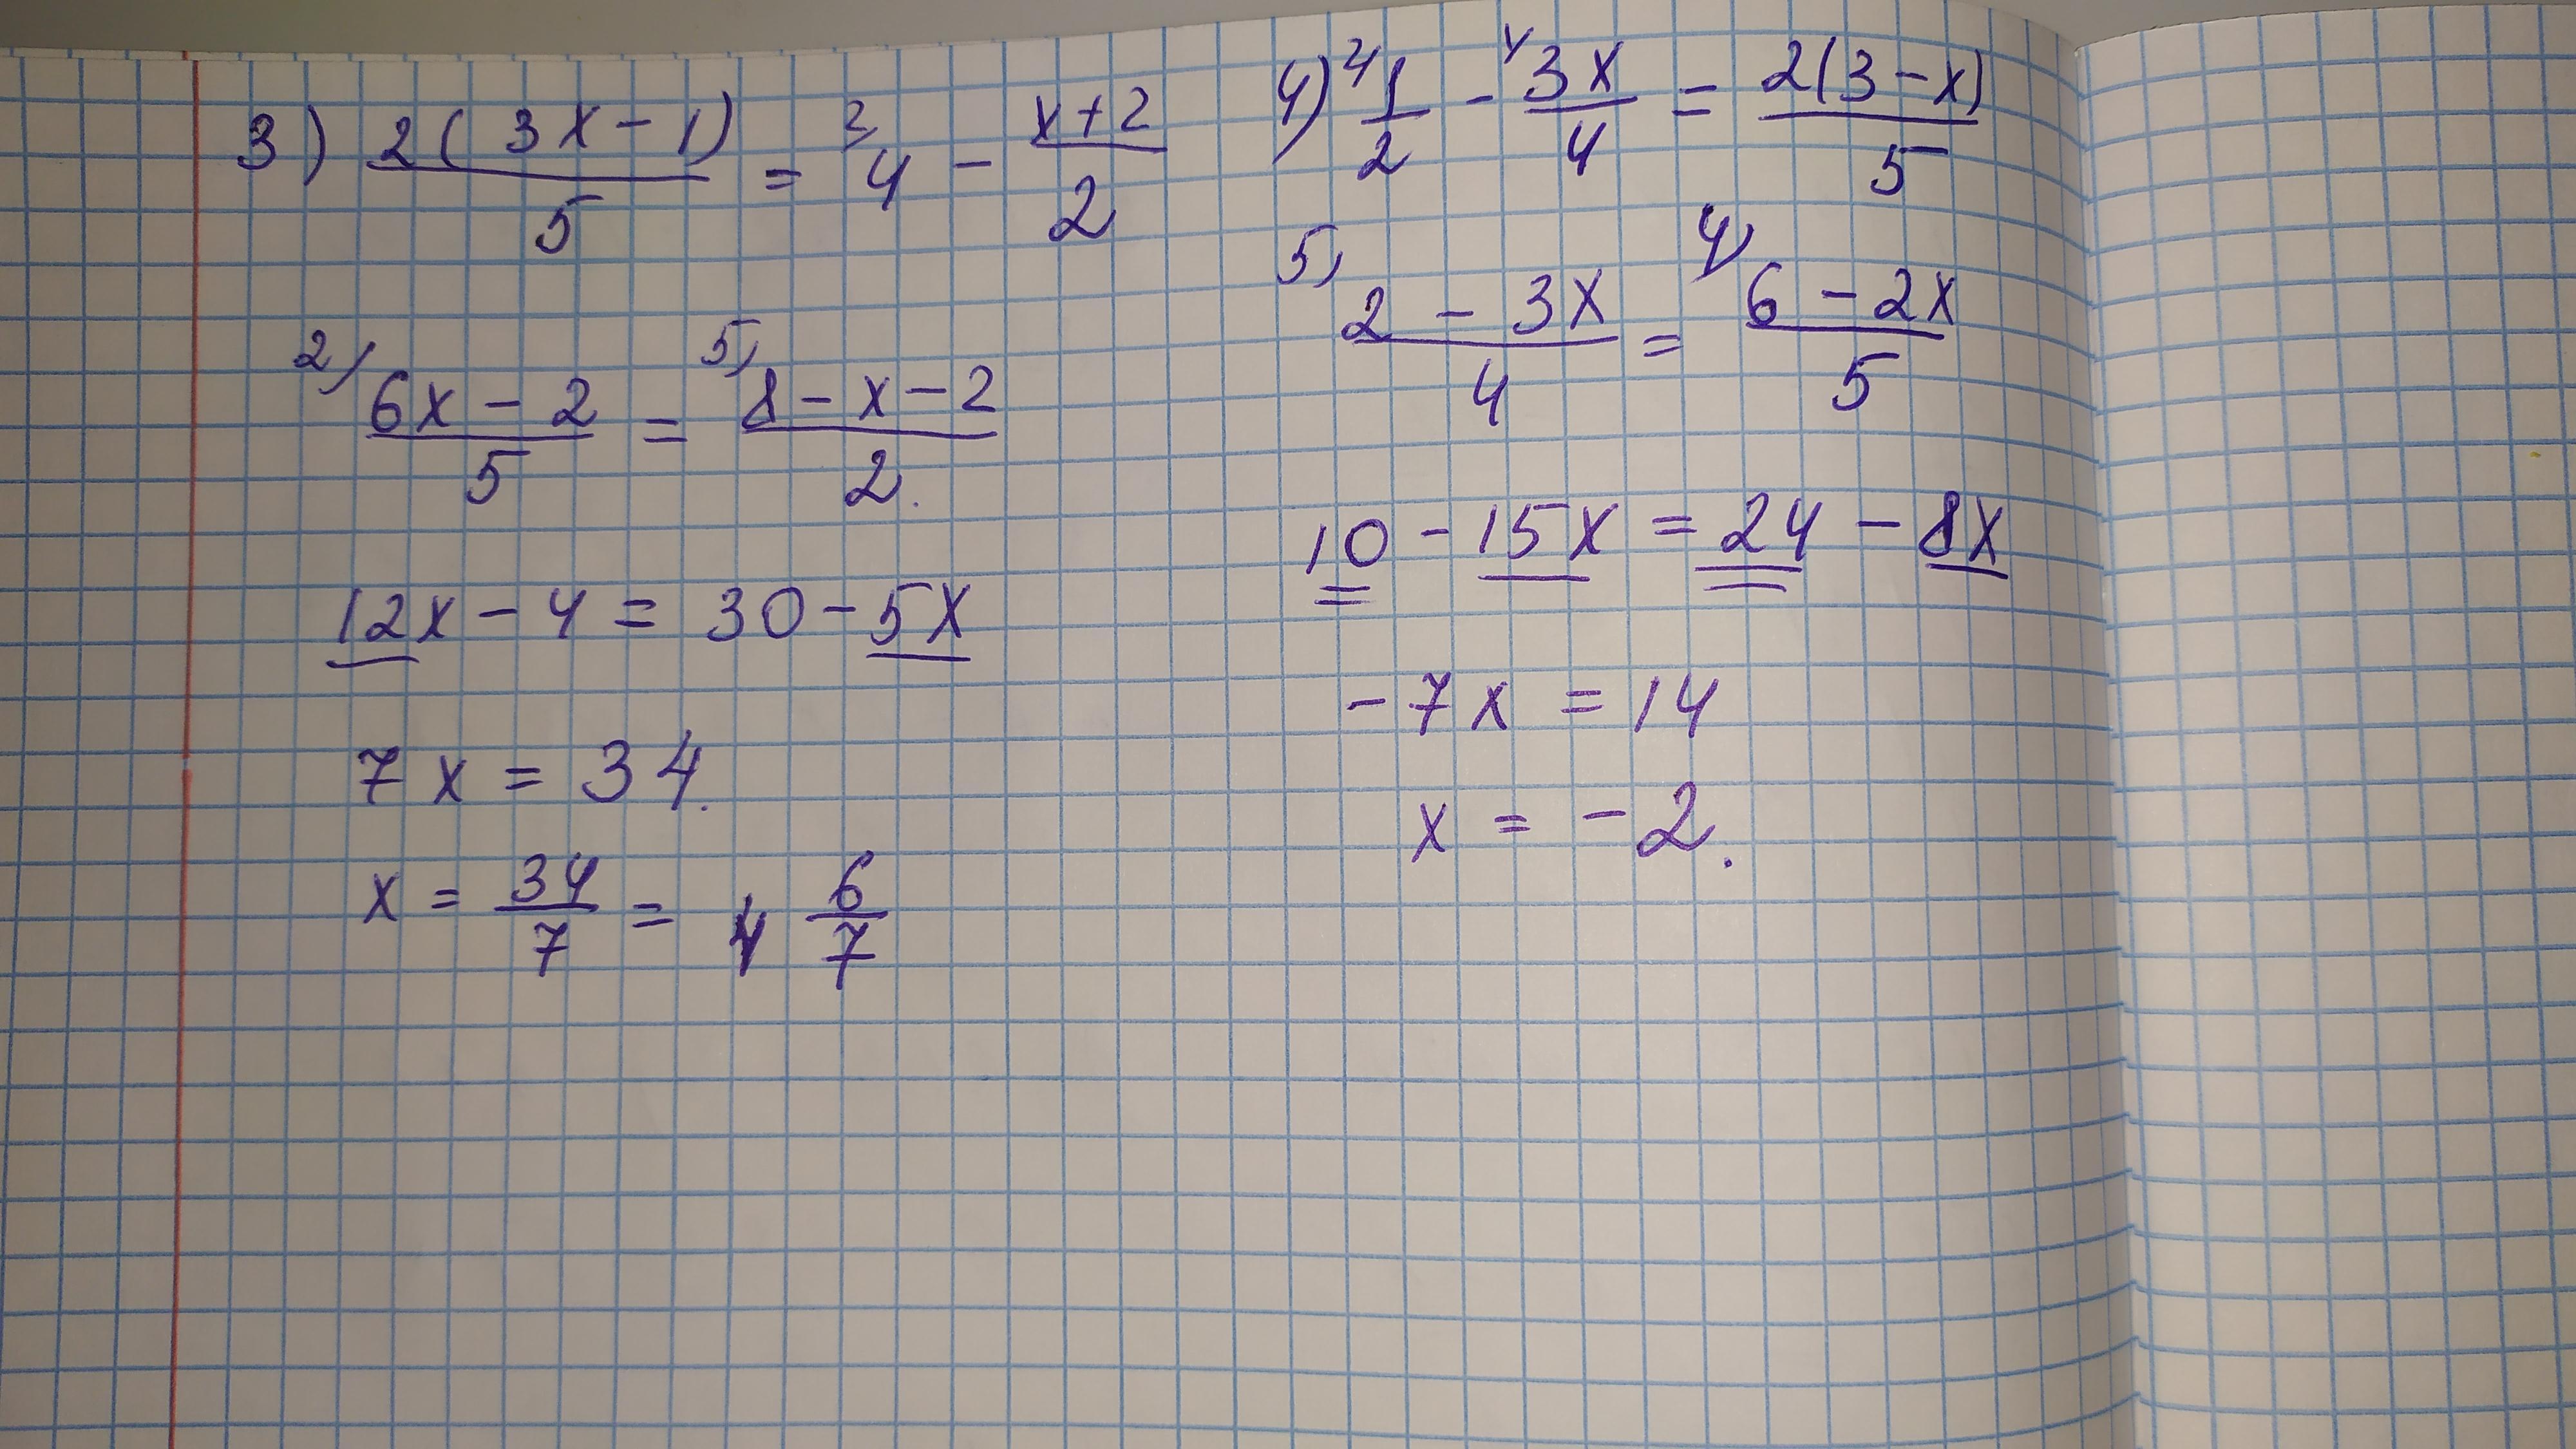 3) 2(3x-1)/5 = ²⁾4 - (x+2)/2
²⁾(6x-2)/5 = ⁵⁾(8-x-2)/2.
12x-4 = 30-5x
7x = 34.
x = 34/7 = 4 6/7
4) ²⁾1/2 - 3x/4 = 2(3-x)/5
⁵⁾(2-3x)/4 = ⁴⁾(6-2x)/5
10-15x = 24-8x
-7x = 14
x = -2.